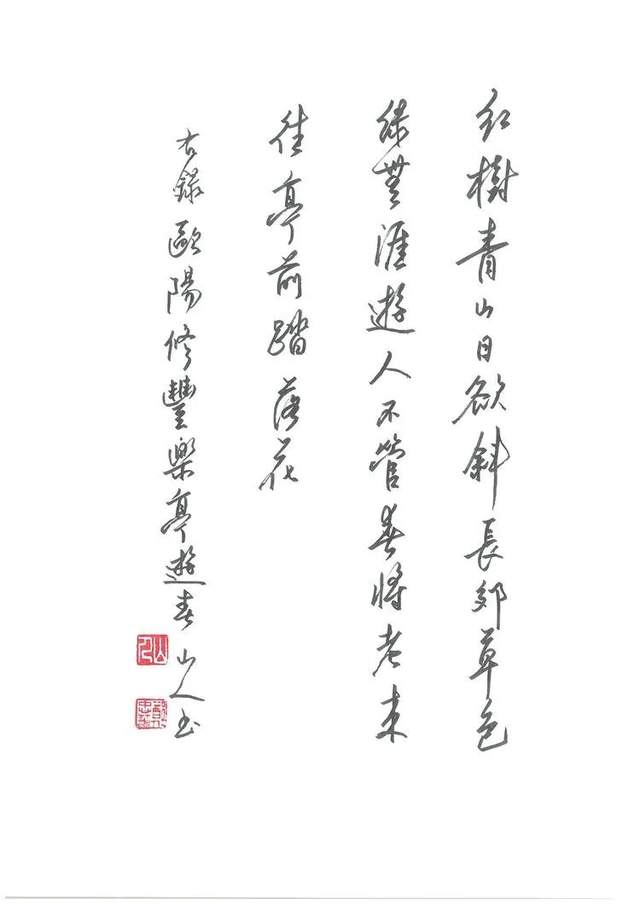 红樹青山日欲斜長郊草色
綠無涯遊人不管春將老来
往亭前踏落花
右錄歐陽修豐樂亭遊春山人书
山人